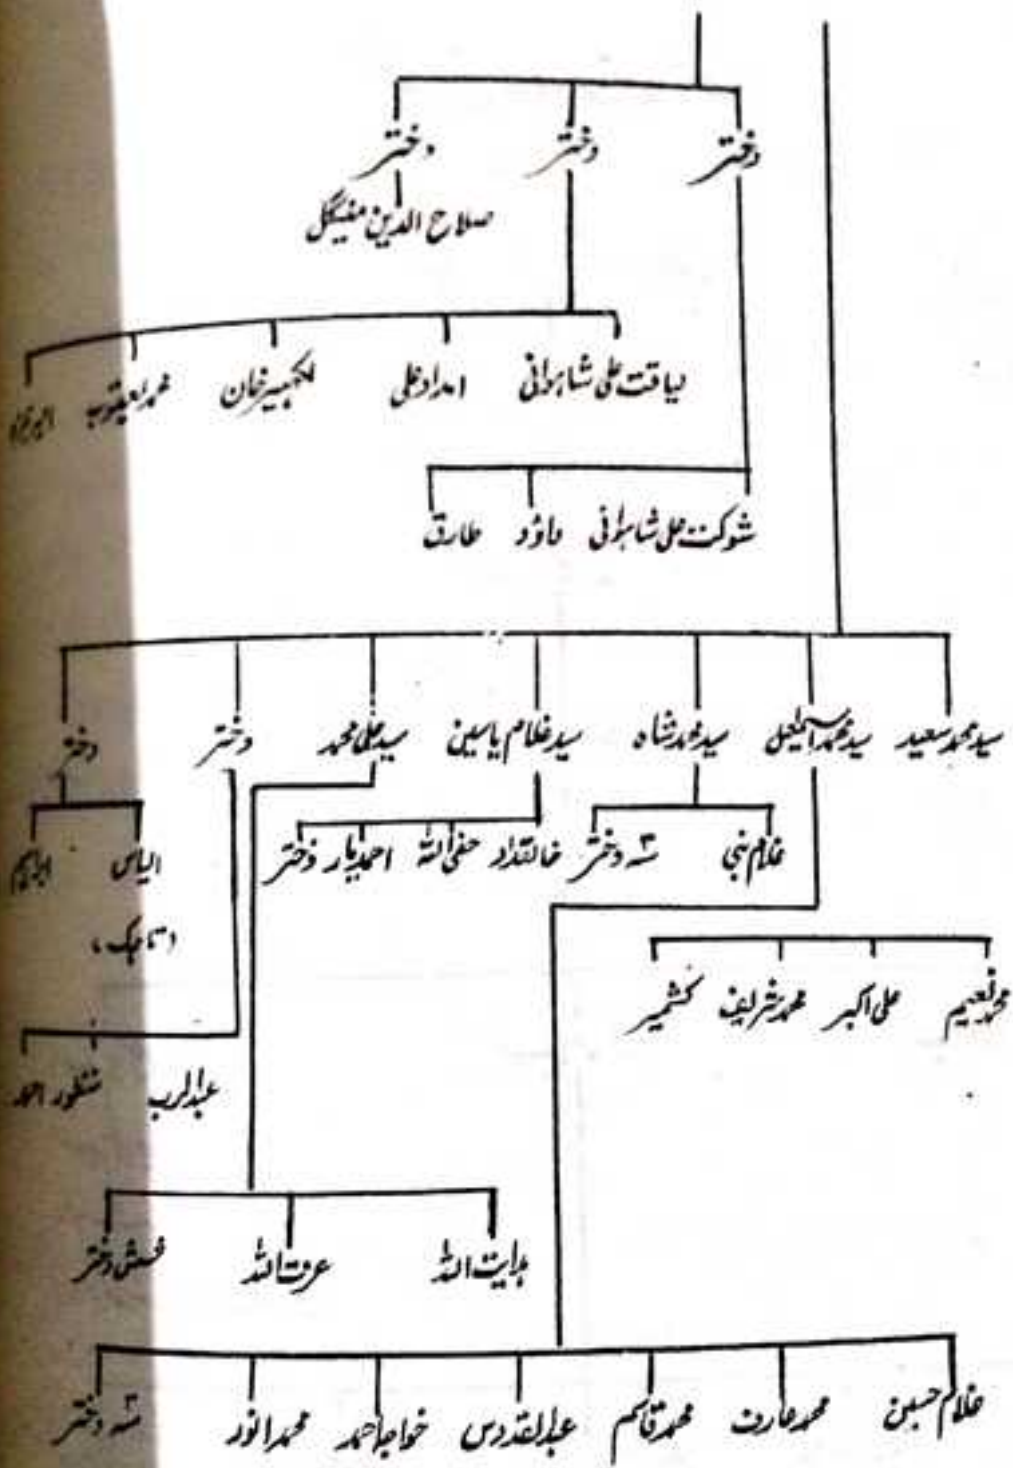 دختر دختر دختر
صلاح الدین مینگل
لیاقت علی شاہوانی امداد علی لکھمیر خان محمد یعقوب
شوکت علی شاہوانی داؤد طارق
سید محمد سعید سید محمد اسمٰعیل سید محمد شاہ سید غلام یاسین سید علی محمد دختر دختر
غلام نبی سہ دختر خالقداد حفیظ اللہ احمد یار دختر الیاس ابراہیم
(تاجک)
محمد نعیم علی اکبر محمد شریف کشمیر
عبدالرب منظور احمد
ہدایت اللہ عزت اللہ شش دختر
غلام حسین محمد عارف محمد قاسم عبدالقدوس خواجہ احمد محمد انور سہ دختر